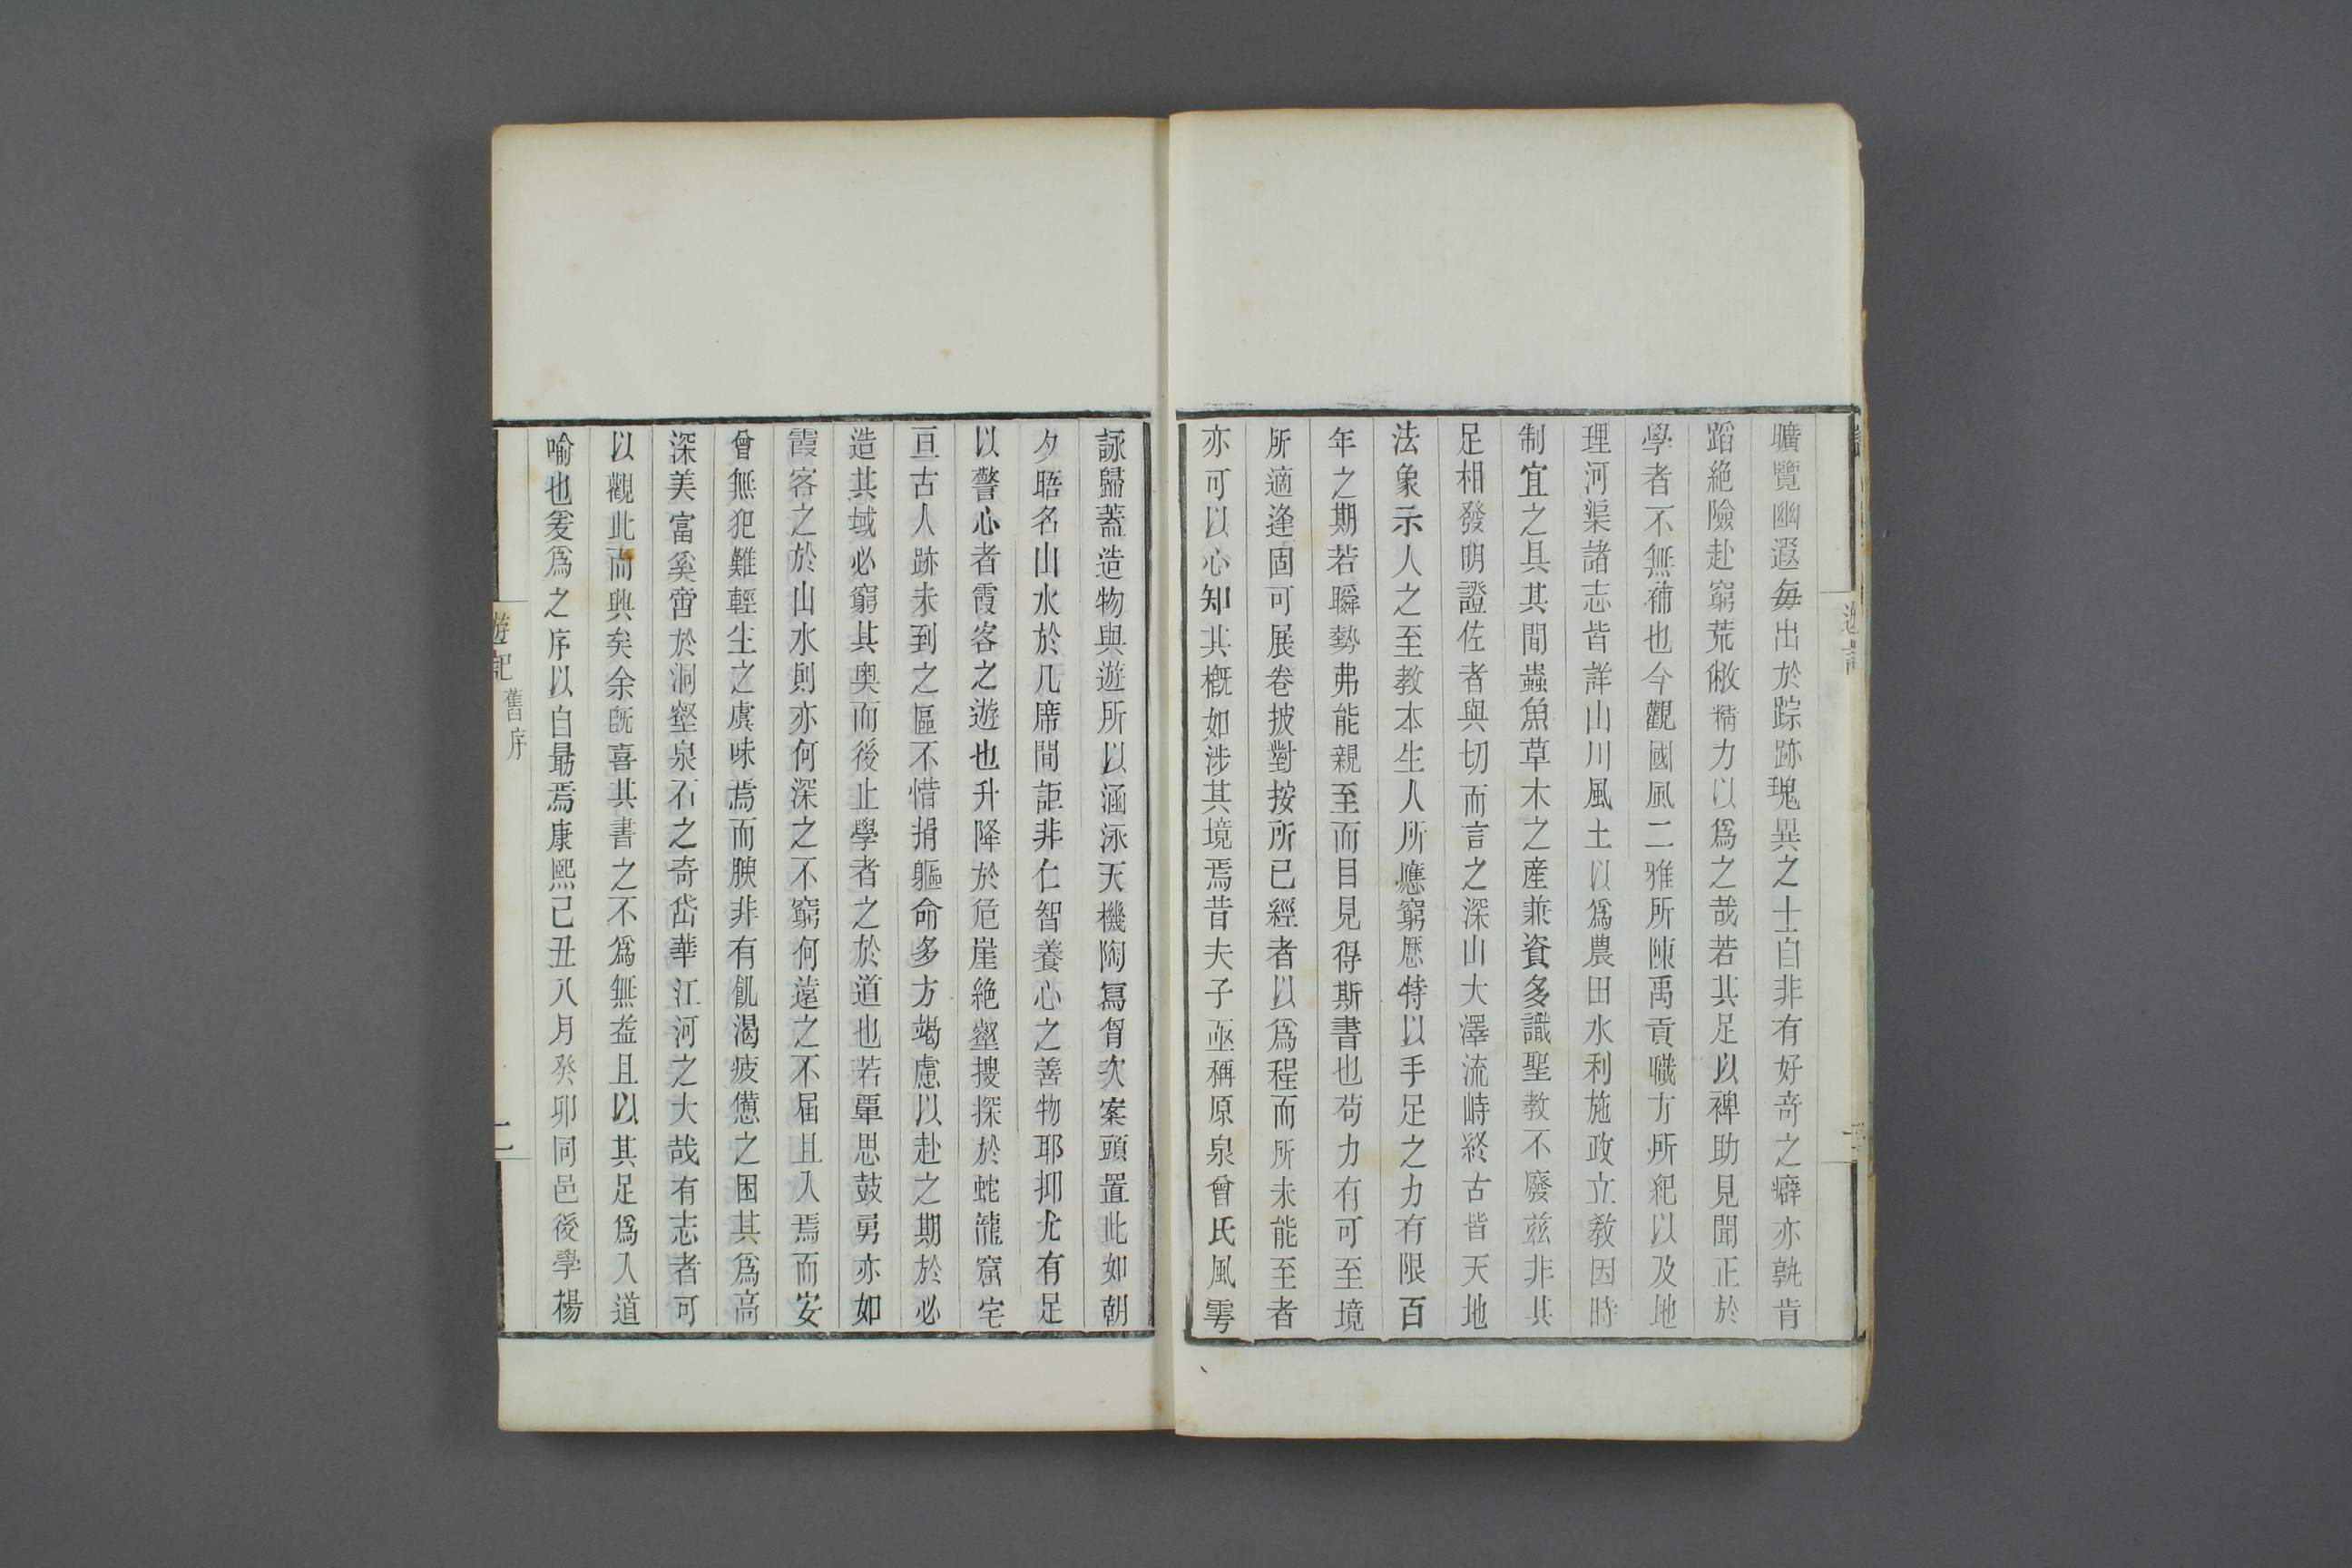 曠覽幽遐毎出於踪跡瑰異之士自非有好奇之癖亦孰肯
蹈絶險赴窮荒敝精力以爲之哉若其足以裨助見聞正於
學者不無補也今觀國風二雅所陳禹貢職方所紀以及地
理河渠諸志皆詳山川風土以爲農田水利施政立教因時
制宜之具其間蟲魚草木之産兼資多識聖教不廢茲非其
足相發明證佐者與切而言之深山大澤流峙終古皆天地
法象示人之至教本生人所應窮歷特以手足之力有限百
年之期若瞬勢弗能親至而目見得斯書也苟力有可至境
所適逢固可展卷披對按所已經者以爲程而所未能至者
亦可以心知其槪如涉其境焉昔夫子亟稱原泉曾氏風雩
詠歸蓋造物與遊所以涵泳天機陶寫胷次案頭置此如朝
夕晤名山水於几席間詎非仁智養心之善物耶抑尤有足
以警心者霞客之遊也升降於危崖絶壑搜探於蛇龍窟宅
亘古人跡未到之區不惜捐軀命多方竭慮以赴之期於必
造其域必窮其奥而後止學者之於道也若覃思鼓勇亦如
霞客之於山水則亦何深之不窮何遠之不届且入焉而安
曾無犯難輕生之虞味焉而腴非有飢渴疲憊之困其爲高
深美富奚啻於洞壑泉石之奇岱華江河之大哉有志者可
以觀此而興矣余旣喜其書之不爲無益且以其足爲入道
喻也爰爲之序以自勗焉康熙己丑八月癸卯同邑後學楊
遊記
舊序
二